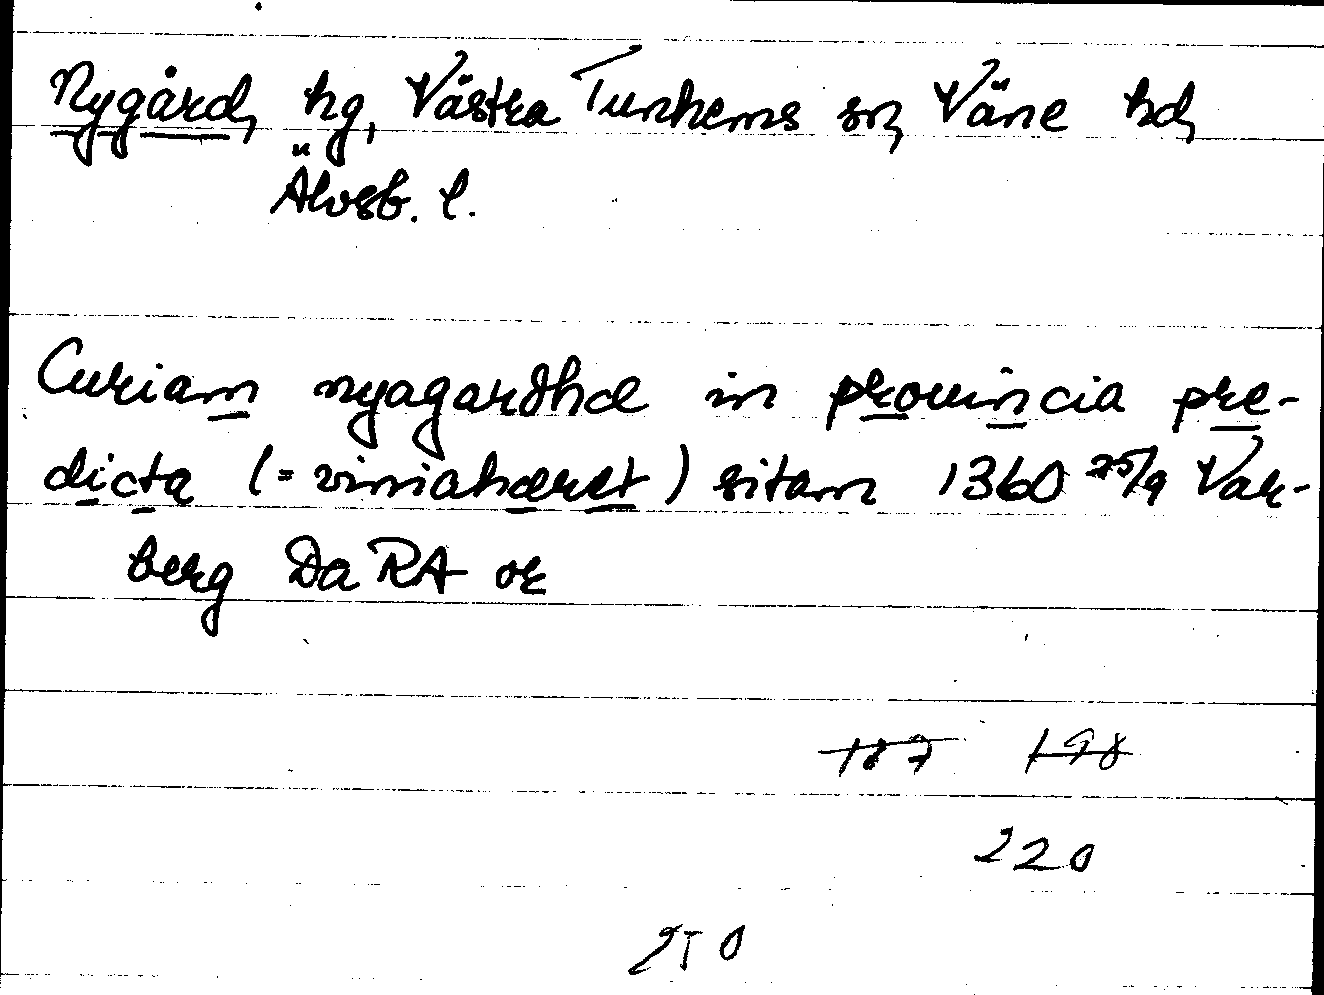 Nygård, hg, Västra Tunhems sn, Väne hd,
Älvsb. l.
Curiam nyagardhæ in prouincia pre-
dicta (= viniahæret) sitam 1360 25/9 Var-
berg DaRA or
187 198
220
250